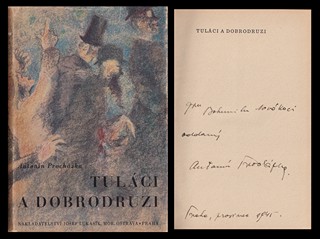 Antonín Procházka
TULÁCI
A DOBRODRUZI
NAKLADATELSTVÍ JOSEF LUKASÍK, MOR. OSTRAVA - PRAHA
TULÁCI A DOBRODRUZI
Bohumilu Novákovi
oddaný
Antonín Procházka
Praha, prosinec 1941